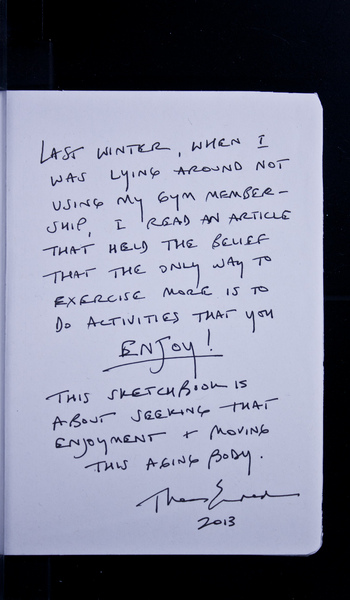 LAST WINTER, WHEN I
WAS LYING AROUND NOT
USING MY GYM MEMBER-
SHIP, I READ AN ARTICLE
THAT HELD THE BELIEF
THAT THE ONLY WAY TO
EXERCISE MORE IS TO
DO ACTIVITIES THAT YOU
ENJOY!
THIS SKETCHBOOK IS
ABOUT SEEKING THAT
ENJOYMENT + MOVING
THIS AGING BODY.
2013